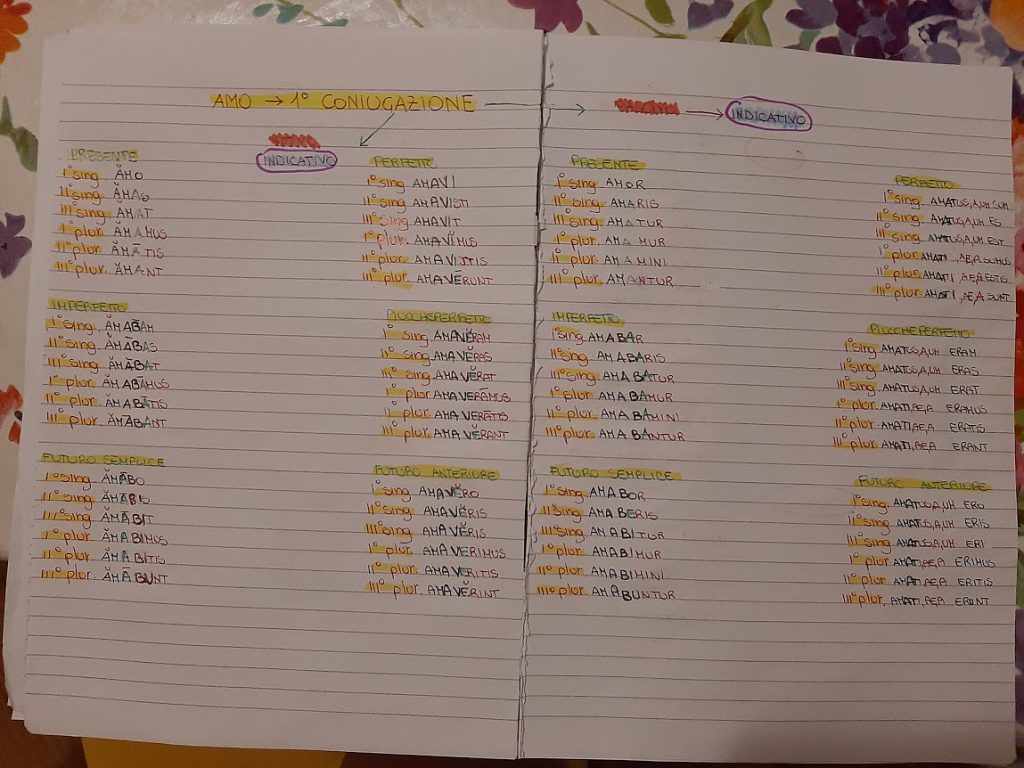 AMO → 1° CONIUGAZIONE
INDICATIVO
PRESENTE
I° sing. ĂMO
II° sing. ĂMAS
III° sing. ĂMAT
I° plur. ĂMĀMUS
II° plur. ĂMĀTIS
III° plur. ĂMANT
IMPERFETTO
I° sing. ĂMĀBAM
II° sing. ĂMĀBAS
III° sing. ĂMĀBAT
I° plur. ĂMABĀMUS
II° plur. ĂMABĀTIS
III° plur. ĂMĀBANT
FUTURO SEMPLICE
I° sing. ĂMĀBO
II° sing. ĂMĀBIS
III° sing. ĂMĀBIT
I° plur. ĂMABIMUS
II° plur. ĂMABITIS
III° plur. ĂMĀBUNT
PERFETTO
I° sing. AMAVI
II° sing. AMAVISTI
III° sing. AMAVIT
I° plur. AMAVĬMUS
II° plur. AMAVISTIS
III° plur. AMAVĒRUNT
PIUCCHEPERFETTO
I° sing. AMAVĔRAM
II° sing. AMAVĔRAS
III° sing. AMAVĔRAT
I° plur. AMAVERĀMUS
II° plur. AMAVERĀTIS
III° plur. AMAVĔRANT
FUTURO ANTERIORE
I° sing. AMAVĔRO
II° sing. AMAVĔRIS
III° sing. AMAVĔRIS
I° plur. AMAVERIMUS
II° plur. AMAVERITIS
III° plur. AMAVĔRINT
INDICATIVO
PRESENTE
I° sing. AMOR
II° sing. AMARIS
III° sing. AMATUR
I° plur. AMAMUR
II° plur. AMAMINI
III° plur. AMANTUR
IMPERFETTO
I° sing. AMABAR
II° sing. AMABARIS
III° sing. AMABATUR
I° plur. AMABAMUR
II° plur. AMABAMINI
III° plur. AMABANTUR
FUTURO SEMPLICE
I° sing. AMABOR
II° sing. AMABERIS
III° sing. AMABITUR
I° plur. AMABIMUR
II° plur. AMABIMINI
III° plur. AMABUNTUR
PERFETTO
I° sing. AMATUS,A,UM SUM
II° sing. AMATUS,A,UM ES
III° sing. AMATUS,A,UM EST
I° plur. AMATI,AE,A SUMUS
II° plur. AMATI,AE,A ESTIS
III° plur. AMATI,AE,A SUNT
PIUCCHEPERFETTO
I° sing. AMATUS,A,UM ERAM
II° sing. AMATUS,A,UM ERAS
III° sing. AMATUS,A,UM ERAT
I° plur. AMATI,AE,A ERAMUS
II° plur. AMATI,AE,A ERATIS
III° plur. AMATI,AE,A ERANT
FUTURO ANTERIORE
I° sing. AMATUS,A,UM ERO
II° sing. AMATUS,A,UM ERIS
III° sing. AMATUS,A,UM ERI
I° plur. AMATI,AE,A ERIMUS
II° plur. AMATI,AE,A ERITIS
III° plur. AMATI,AE,A ERUNT